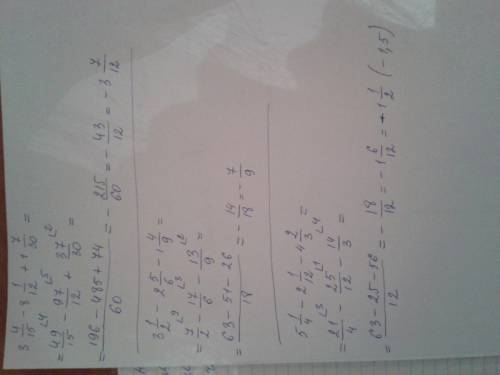 3 4/15 - 8 1/12 + 1 7/30 =
= 49/15 ⌊4 - 97/12 ⌊5 + 37/30 ⌊2 =
= (196 - 485 + 74)/60 = - 215/60 = - 43/12 = - 3 7/12
3 1/2 - 2 5/6 - 1 4/9 =
= 7/2 ⌊9 - 17/6 ⌊3 - 13/9 ⌊2 =
= (63 - 51 - 26)/18 = - 14/18 = - 7/9
5 1/4 - 2 1/12 - 4 2/3 =
= 21/4 ⌊3 - 25/12 ⌊1 - 14/3 ⌊4 =
= (63 - 25 - 56)/12 = - 18/12 = - 1 6/12 = - 1 1/2 (- 1,5)